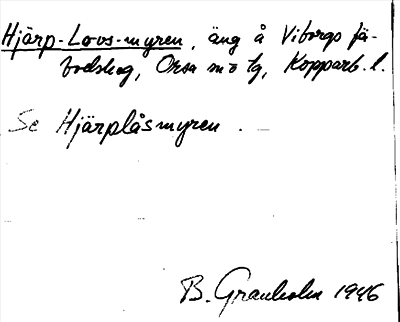 Hjärp-Lovs-myren, äng å Viborgs fä-
bodskog, Orsa sn o tg, Kopparb. l.
Se Hjärplåsmyren.
B. Granholm 1946